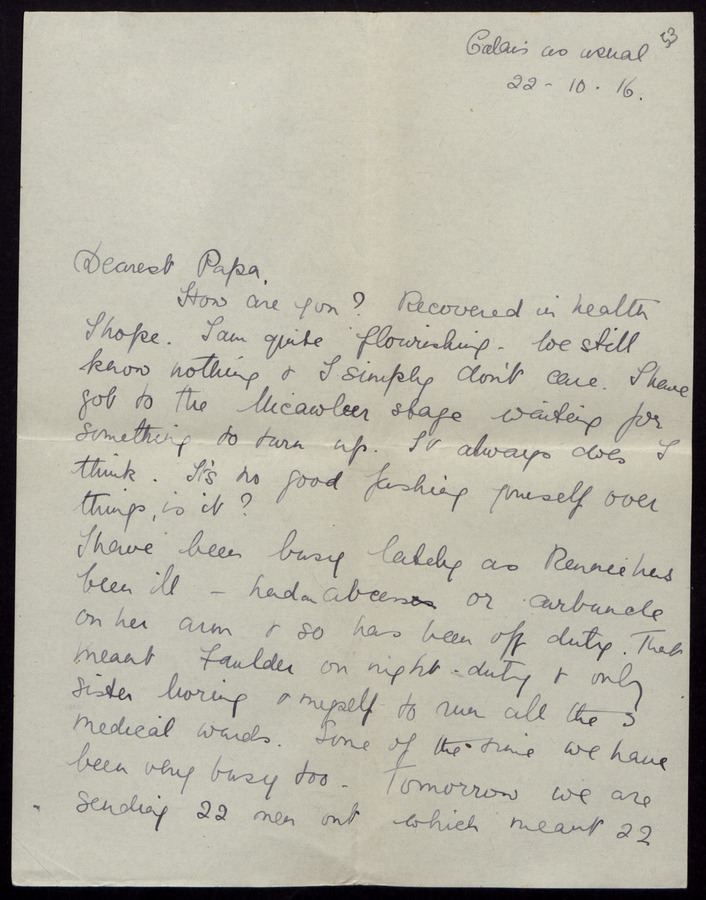 53
Calais as usual
22 - 10 - 16.
Dearest Papa,
How are you? Recovered in health
I hope. I am quite flourishing. We still
know nothing & I simply don't care. I have
got to the Micawber stage waiting for
something to turn up. It always does I
think. It's no good fashing yourself over
things, is it?
I have been busy lately as Rennie has
been ill – had an abcess or carbuncle
on her arm & so has been off duty. That
meant Faulder on night-duty & only
Sister & myself to run all the 3
medical wards. Some of the time we have
been very busy too. Tomorrow we are
sending 22 men out which meant 22